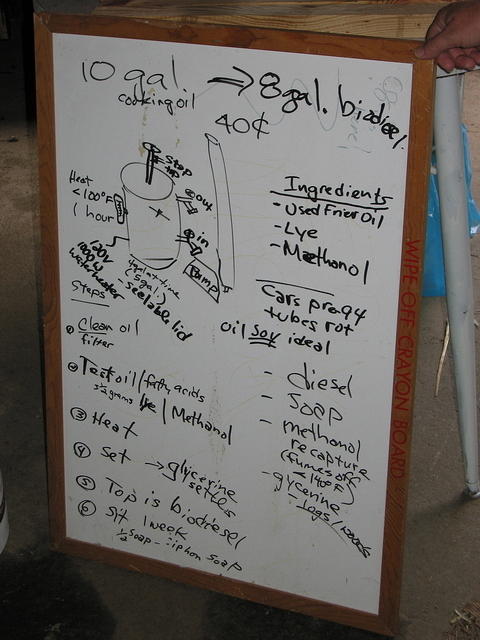 10 gal. → 8 gal. biodiesel
cooking oil
40¢
stop
top
Heat
<100°F
1 hour
out
in
Pump
120V
1000W
water heater
(5 gal.)
seelable lid
Ingredients
- Used Frier Oil
- Lye
- Methanol
Cars pre 94
tubes rot
oil soy ideal
Steps
① Clean oil
filter
② Test oil / fatty acids
3½ grams lye / Methanol
③ Heat
④ Set → glycerine
settles
⑤ Top is biodiesel
⑥ Sit 1 week
½ soap - siphon soap
- diesel
- soap
- methonol
recapture
(fumes off
<140°F)
- glycerine
- logs /
WIPE OFF CRAYON BOARD